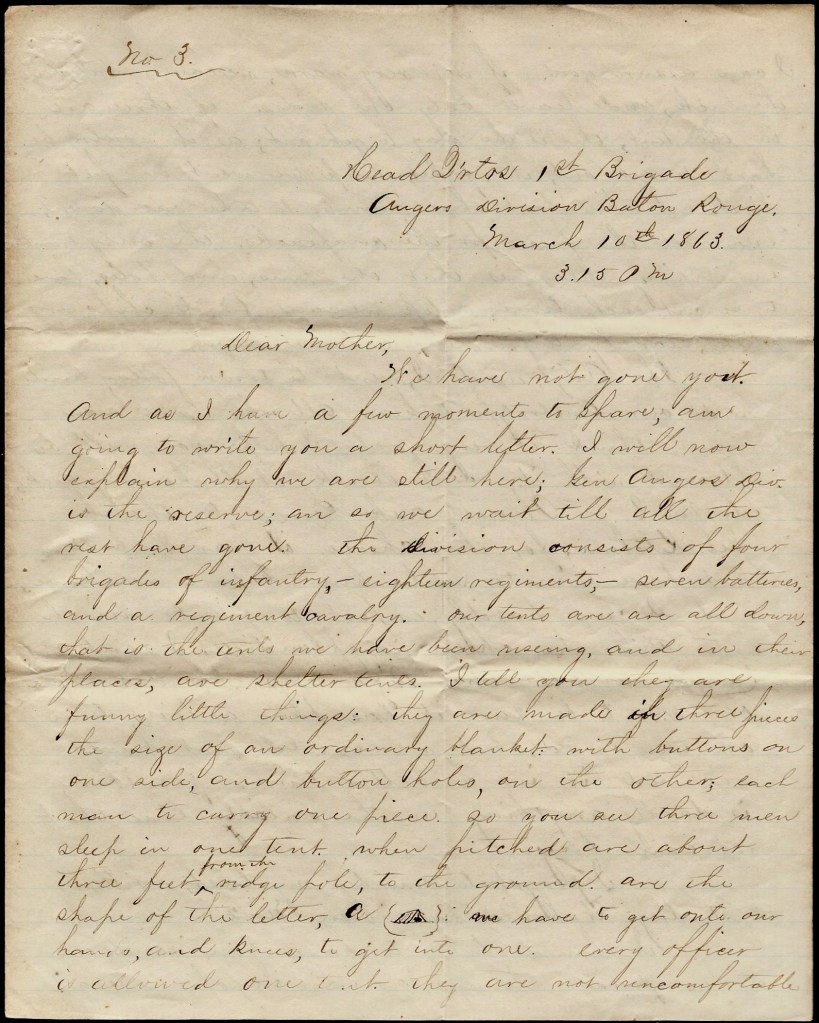 No. 3.
Head Q'rtrs 1st Brigade
Augers Division Baton Rouge,
March 10th 1863.
3.15 P M
Dear Mother,
We have not gone yet.
And as I have a few moments to share, am
going to write you a short letter. I will now
explain why we are still here; Gen Augers Div.
is the reserve; an so we wait till all the
rest have gone. the division consists of four
brigades of infantry, – eighteen regiments, – seven batteries,
and a regiment cavalry. our tents are are all down,
that is the tents we have been useing, and in their
places, are shelter tents. I tell you they are
funny little things: they are made in three pieces
the size of an ordinary blanket: with buttons on
one side, and button holes, on the other; each
man to carry one piece. so you see three men
sleep in one tent. when pitched are about
three feet, from the ridge pole, to the ground. are the
shape of the letter, A : we have to get onto our
hands, and knees, to get into one. every officer
is allowed one tent. they are not uncomfortable